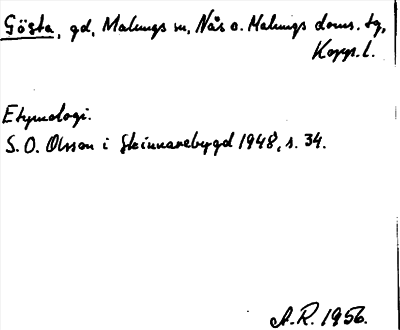 Gösta, gd, Malungs sn, Nås o. Malungs doms. tg,
Kopp. l.
Etymologi.
S. O. Olsson i Skinnarebygd 1948, s. 34.
A.R. 1956.